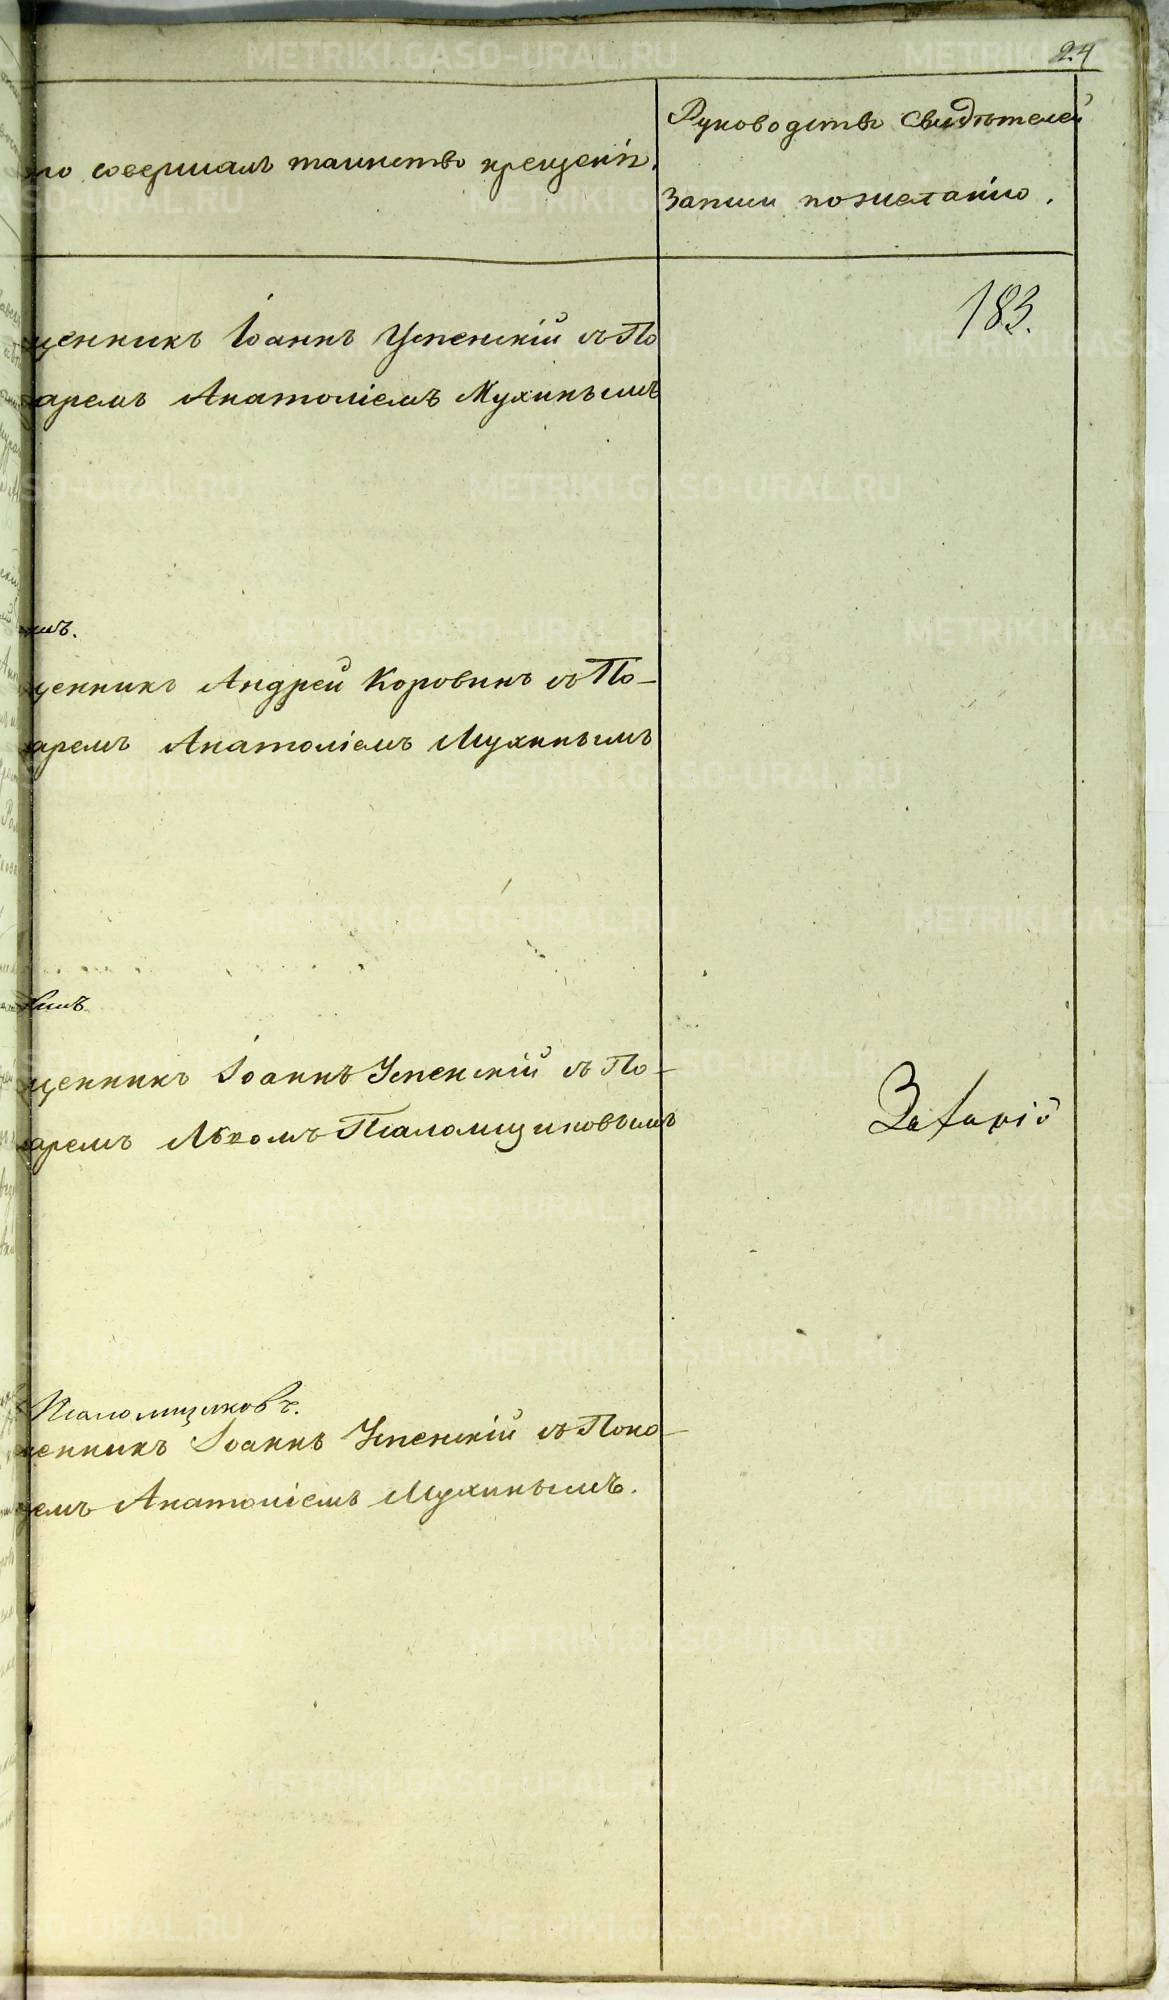 24
то совершалъ таинство крещенія.
Руководство свидѣтелей
Записи по желанію.
183.
щенникъ Іоаннъ Успенскій съ По
аремъ Анатоліемъ Мухинымъ
щенникъ Андрей Коровинъ съ По-
аремъ Анатоліемъ Мухинымъ
щенникъ Іоаннъ Успенскій съ По-
аремъ Пталомщиковымъ
Пталомщиковъ.
щенникъ Іоаннъ Успенскій съ Поно-
емъ Анатоліемъ Мухинымъ.
METRIKI.GASO-URAL.RU